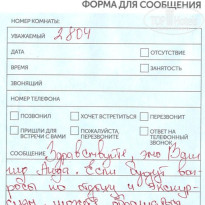 ФОРМА ДЛЯ СООБЩЕНИЯ
НОМЕР КОМНАТЫ:
УВАЖАЕМЫЙ 2804
ДАТА ОТСУТСТВИЕ
ВРЕМЯ ЗАНЯТОСТЬ
ЗВОНЯЩИЙ
НОМЕР ТЕЛЕФОНА
ПОЗВОНИЛ ХОЧЕТ ВСТРЕТИТЬСЯ ПЕРЕЗВОНИТ
ПРИШЛИ ДЛЯ ВСТРЕЧИ С ВАМИ ПОЖАЛУЙСТА, ПЕРЕЗВОНИТЕ ОТВЕТ НА ТЕЛЕФОННЫЙ ЗВОНОК
СООБЩЕНИЕ Здравствуйте, это Ваш
гид Аида. Если будут воп-
росы по отдыху и экскур-